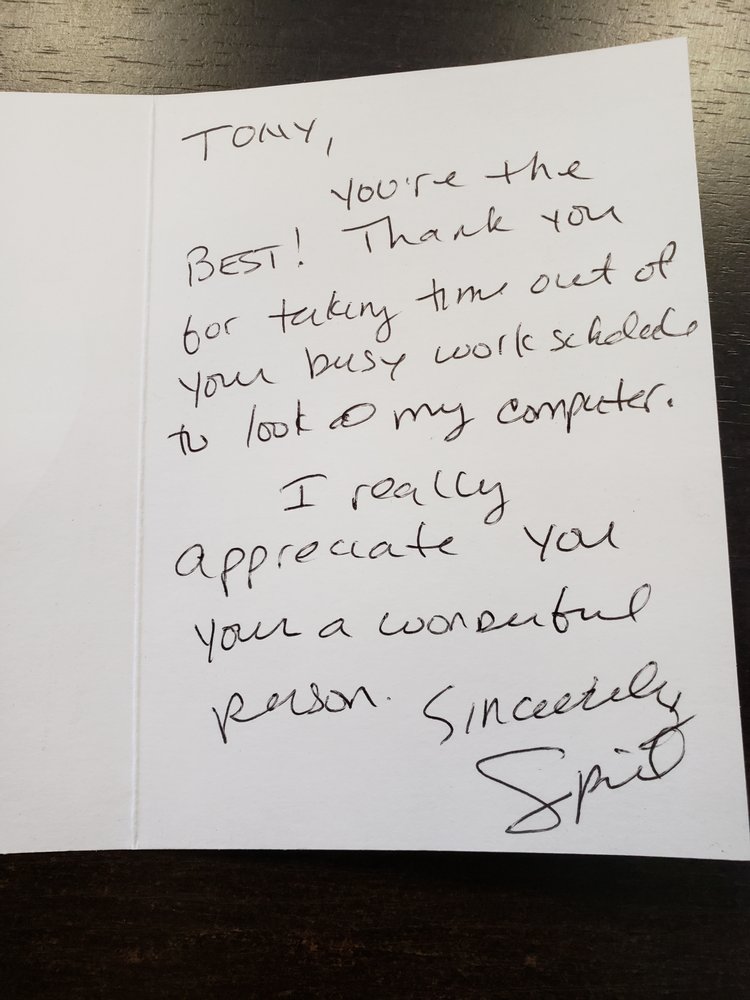 TONY,
you're the
BEST! Thank you
for taking time out of
your busy work schedule
to look @ my computer.
I really
appreciate you
your a wonderful
person. Sincerely